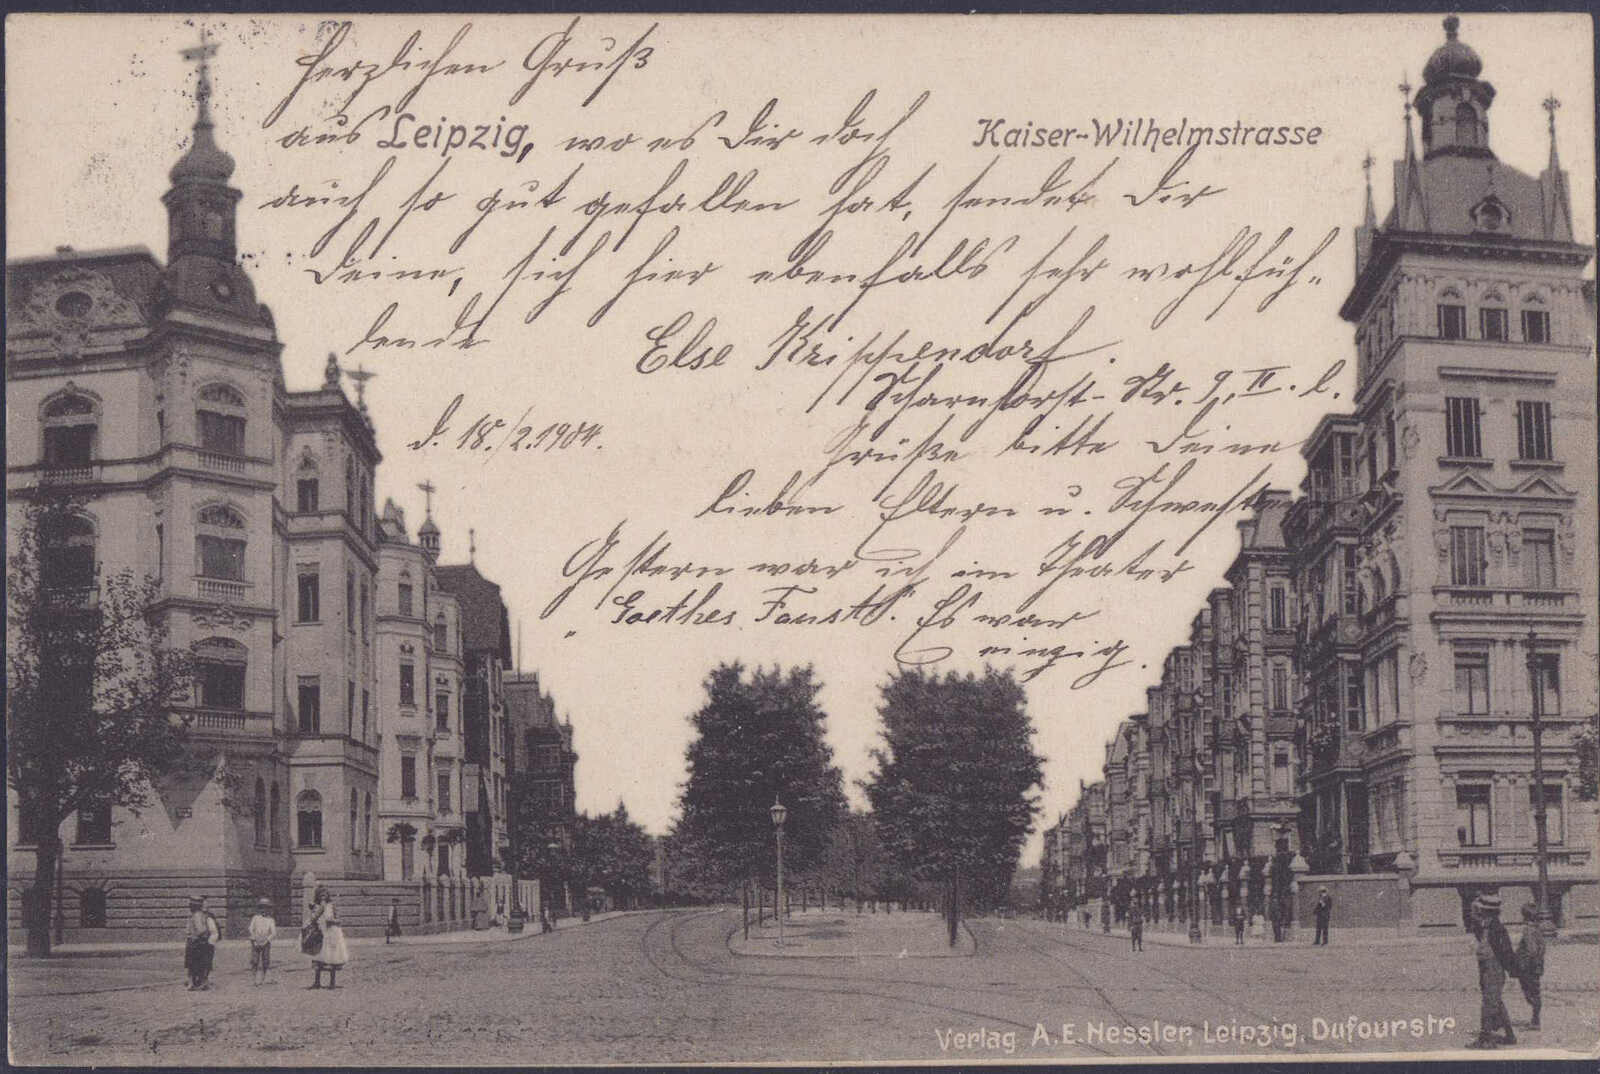 Herzlichen Gruß
aus Leipzig, wo es Dir doch
Kaiser-Wilhelmstrasse
auch so gut gefallen hat, sendet Dir
Deine, sich hier ebenfalls sehr wohlfüh-
lende
Else Krippendorf.
Scharnhorst-Str. 9, II. l.
d. 18./2.1904.
Grüße bitte Deine
lieben Eltern u. Schwestern
Gestern war ich im Theater
"Goethes Faust". Es war
einzig.
Verlag A.E.Hessler, Leipzig, Dufourstr